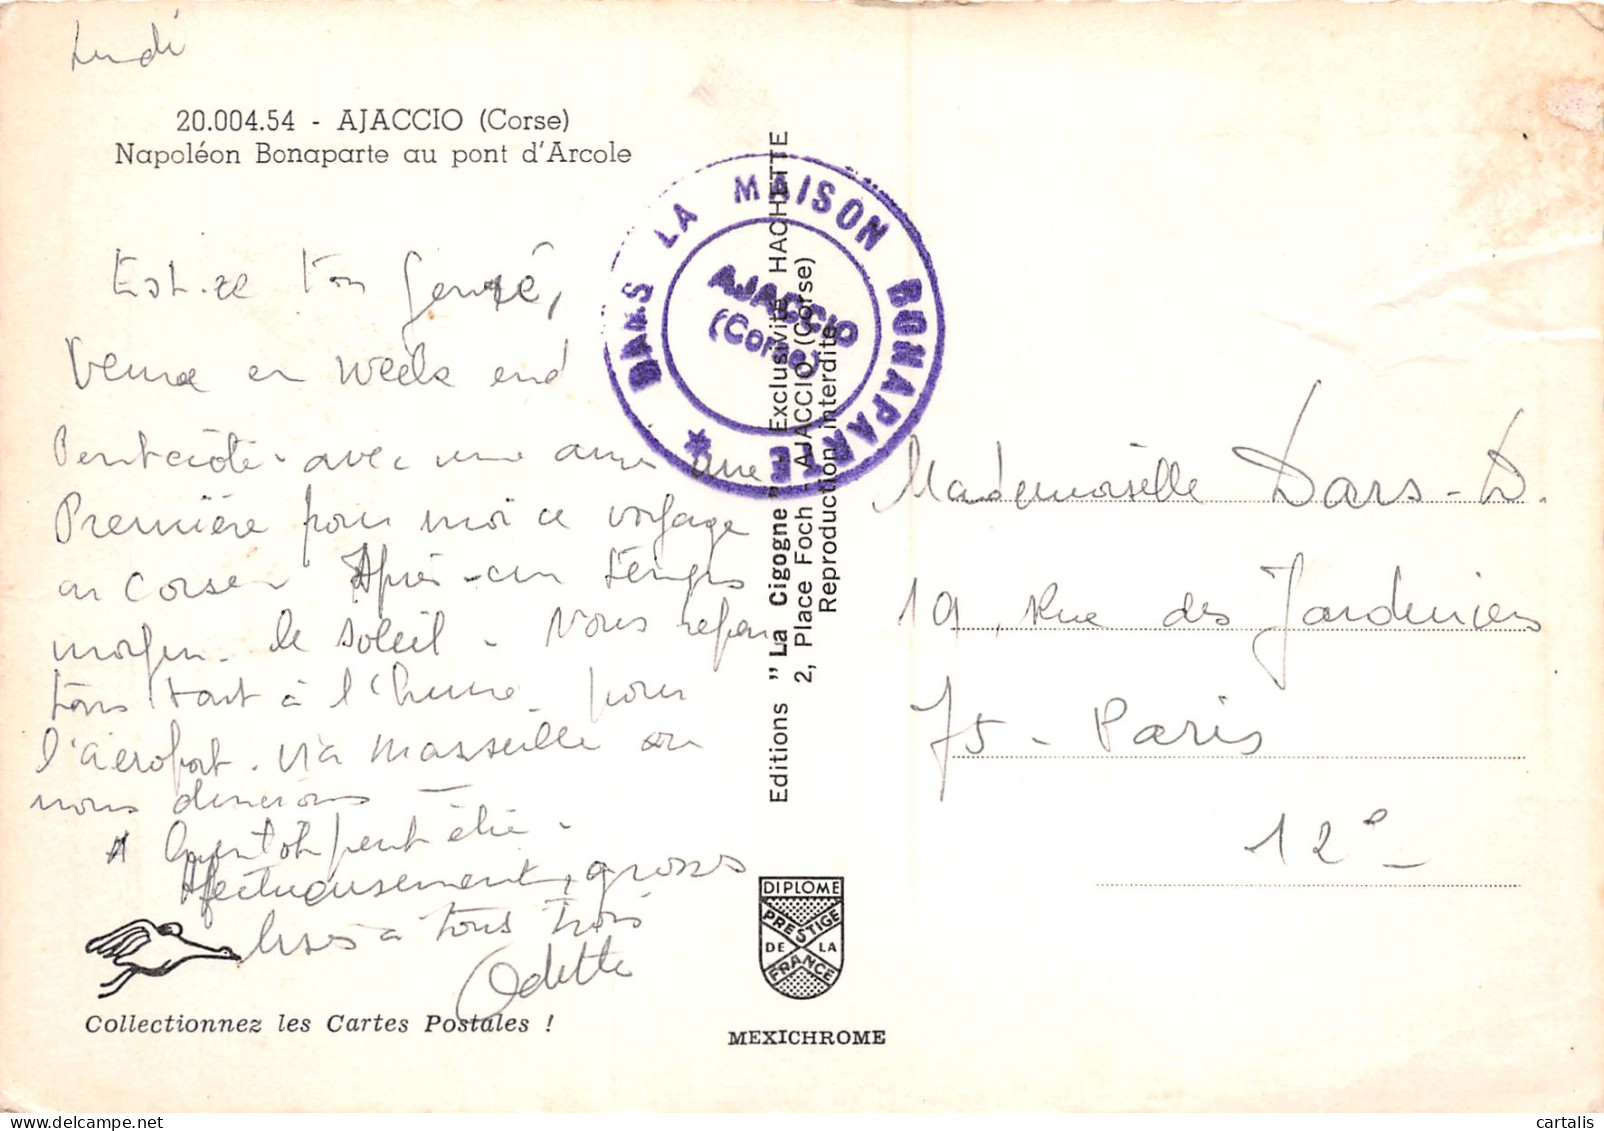 Lundi
20.004.54 - AJACCIO (Corse)
Napoléon Bonaparte au pont d'Arcole
Est-ce ton genre,
Venue en week end
Pentecôte - avec une amie une
Première pour moi ce voyage
en Corse. Après un temps
moyen - le soleil - Nous repar
tons tard à l'heure pour
l'aéroport. via Marseille où
nous dinerons
peut être -
Affectueusement, grosses
bises à tous trois
Odette
Collectionnez les Cartes Postales !
DANS LA MAISON BONAPARTE
AJACCIO
(Corse)
Editions "La Cigogne" - Exclusivité HACHETTE
2, Place Foch - AJACCIO (Corse)
Reproduction interdite
DIPLOME
PRESTIGE
DE LA
FRANCE
MEXICHROME
Mademoiselle Dars-D.
19, Rue des Jardiniers
75 - Paris
12e
cartalis
delcampe.net